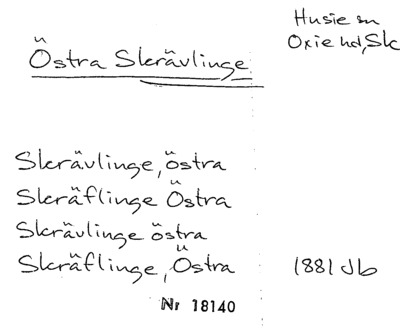 Husie sn
Oxie hd, Sk
Östra Skrävlinge
Skrävlinge, östra
Skräflinge Östra
Skrävlinge östra
Skräflinge, Östra 1881 Jb
Nr 18140